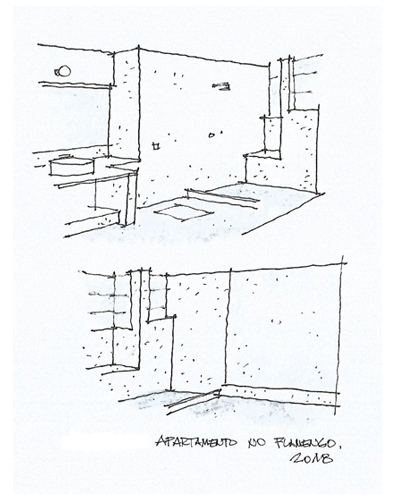 APARTAMENTO NO FLAMENGO.
2018